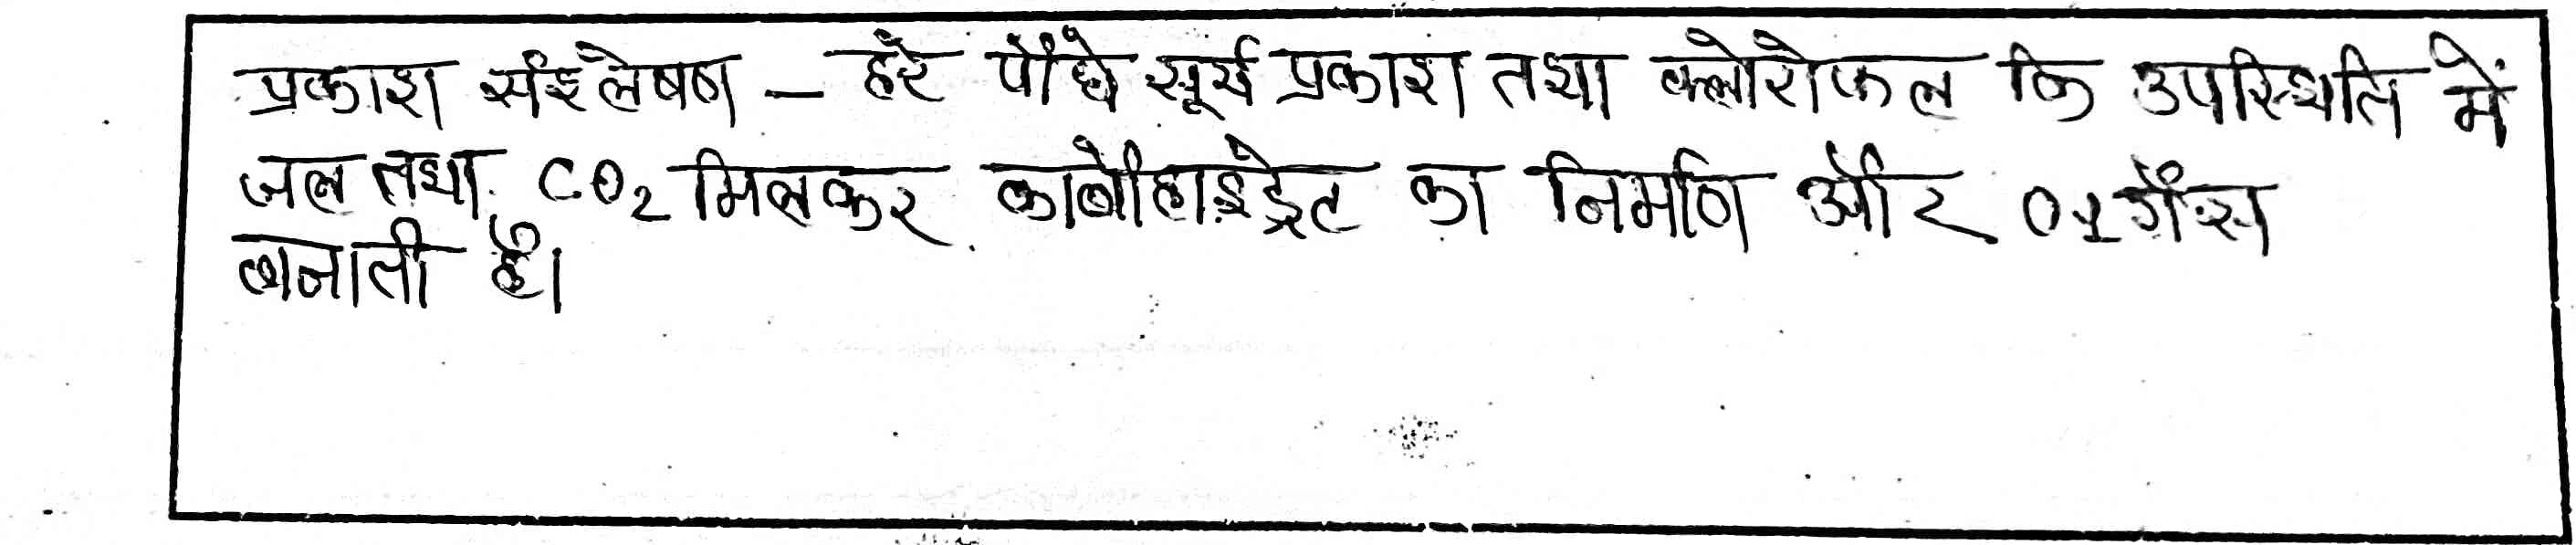 प्रकाश संश्लेषण – हरे पौधे सूर्य प्रकाश तथा क्लोरोफल कि उपस्थिति में
जल तथा CO₂ मिलकर कार्बोहाइड्रेट का निर्माण और O₂ गैस
बनाती है।